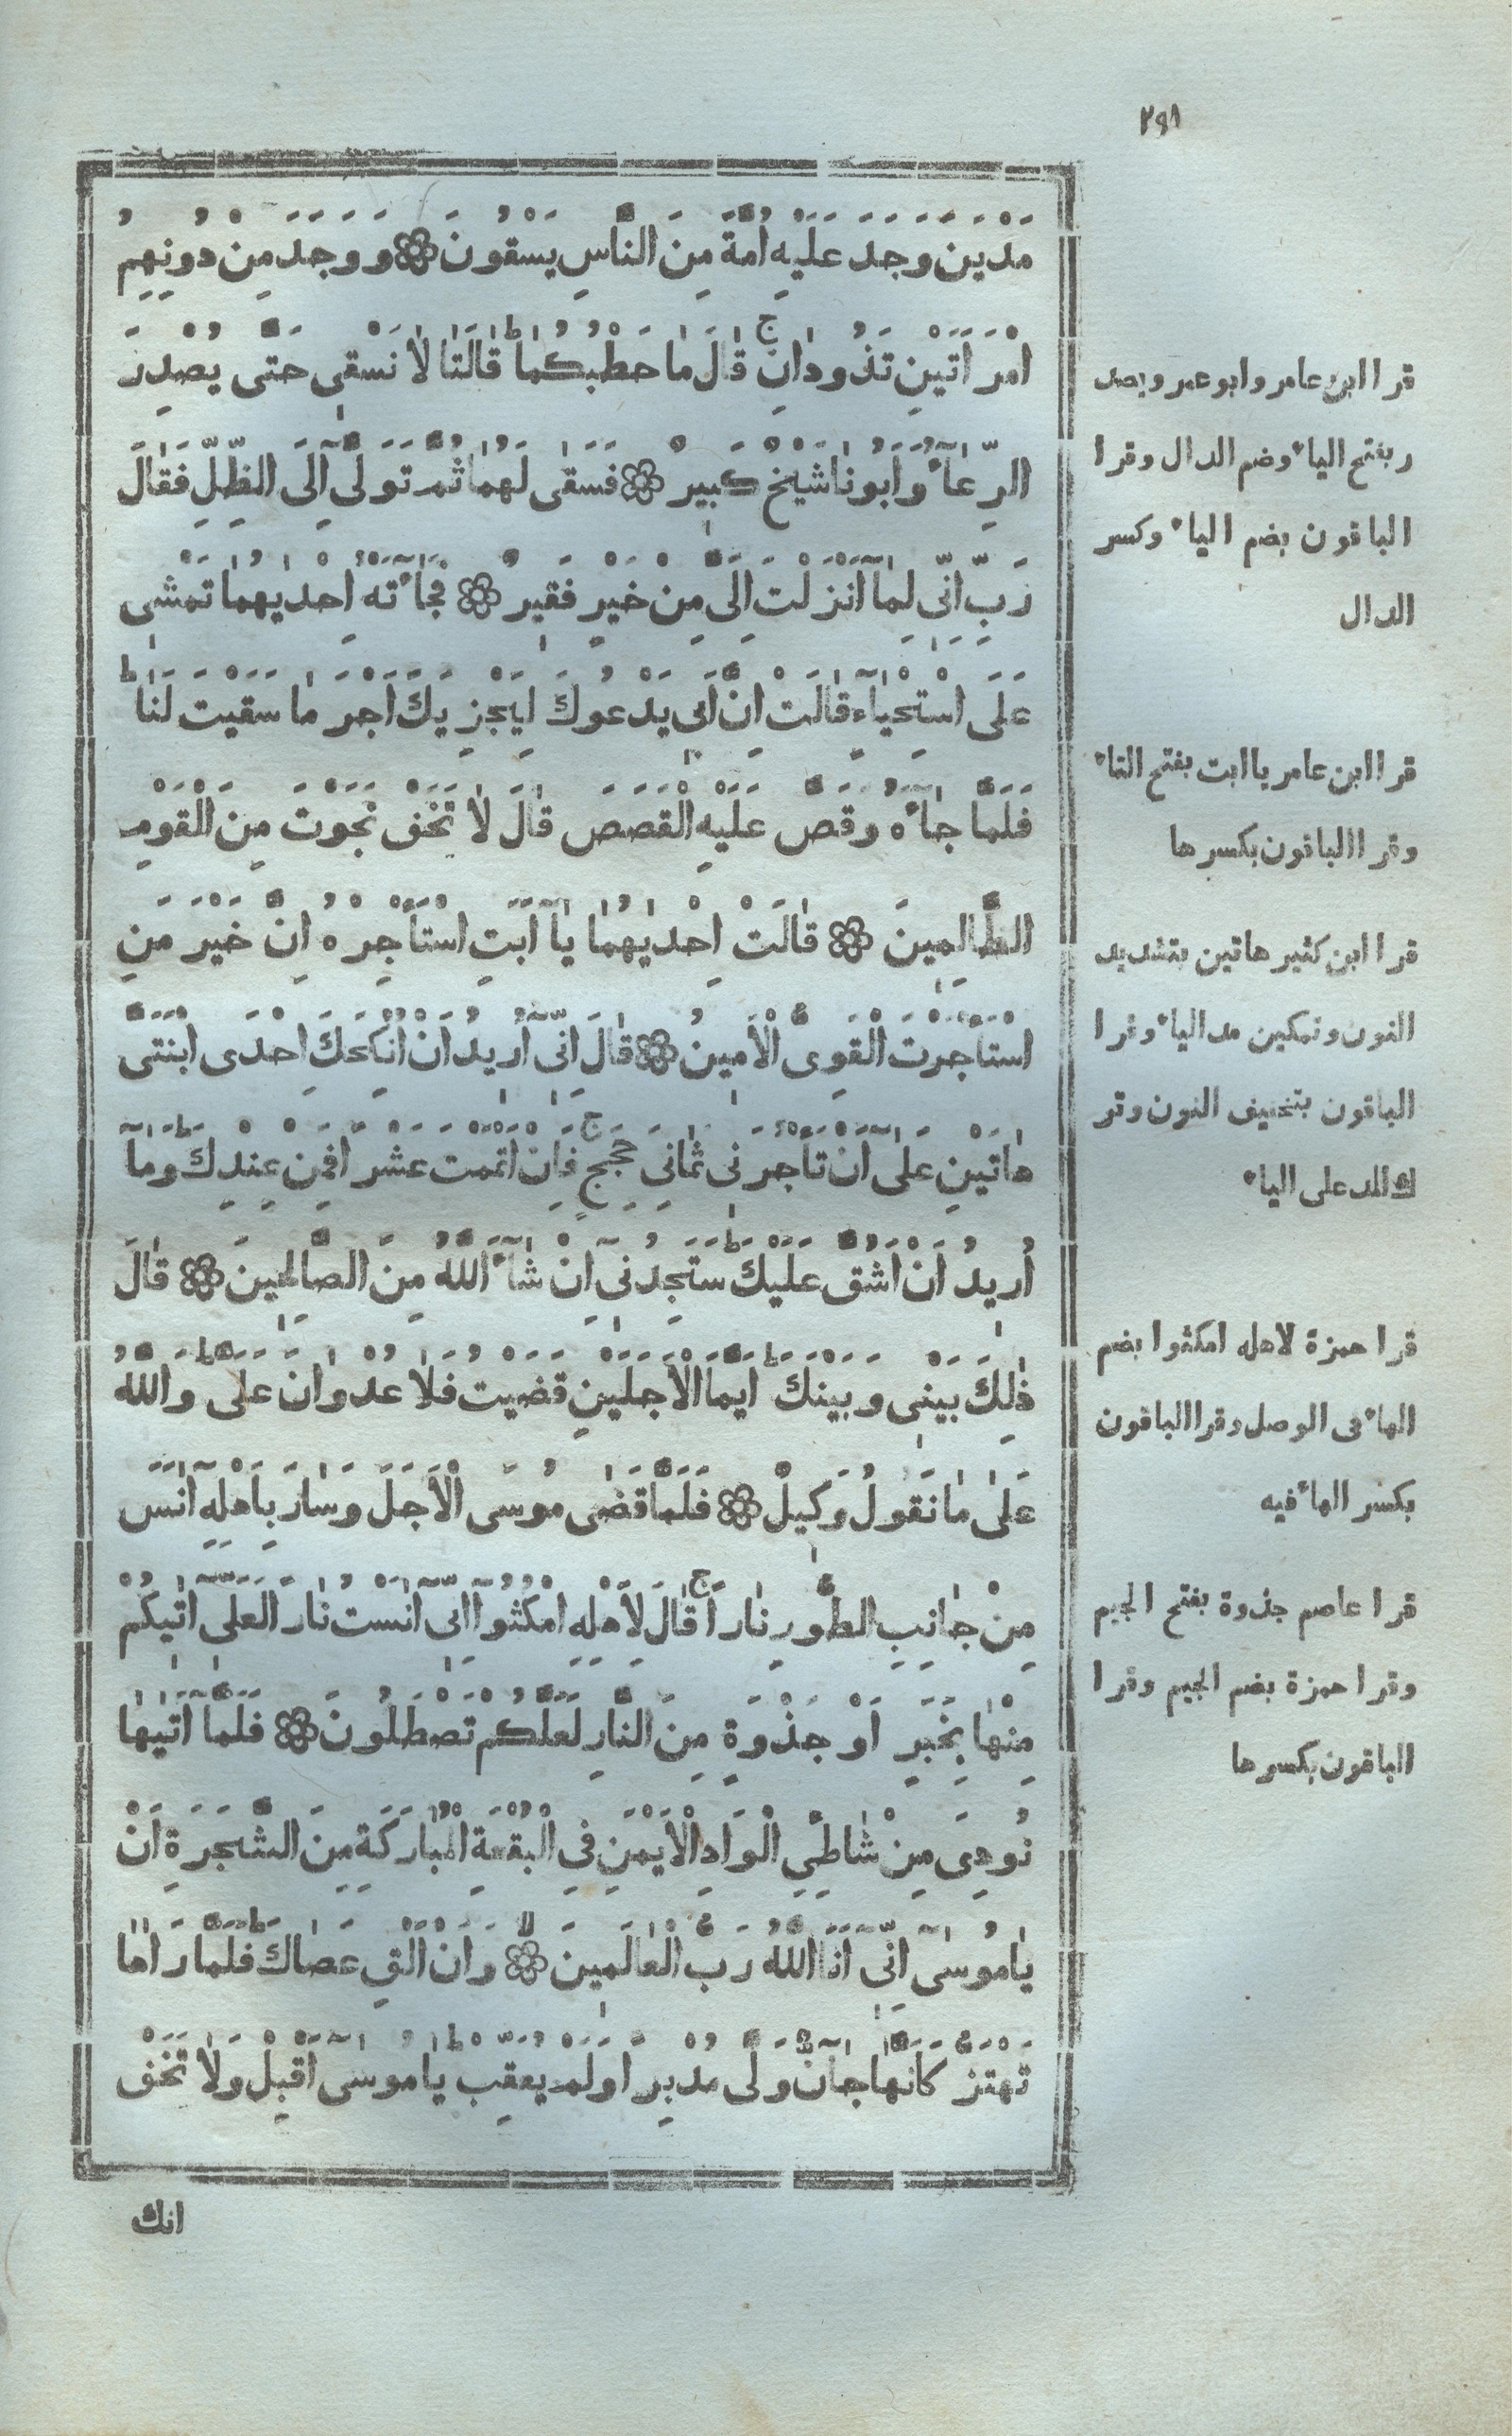 ٢٩٨
مَدْيَنَ وَجَدَ عَلَيْهِ اُمَّةً مِنَ النَّاسِ يَسْقُونَ ۞ وَوَجَدَ مِنْ دُونِهِمُ
امْرَاَتَيْنِ تَذُودٰانِ ج قٰالَ مٰا خَطْبُكُمٰا ط قٰالَتٰا لٰا نَسْقِى حَتَّى يُصْدِرَ
الرِّعٰآءُ وَاَبُونٰا شَيْخٌ كَبِيرٌ ۞ فَسَقٰى لَهُمٰا ثُمَّ تَوَلّٰىٓ اِلَى الظِّلِّ فَقٰالَ
رَبِّ اِنِّى لِمٰٓا اَنْزَلْتَ اِلَىَّ مِنْ خَيْرٍ فَقِيرٌ ۞ فَجٰآءَتْهُ اِحْدٰيهُمٰا تَمْشِى
عَلَى اسْتِحْيٰٓاءٍ قٰالَتْ اِنَّ اَبِى يَدْعُوكَ لِيَجْزِيَكَ اَجْرَ مٰا سَقَيْتَ لَنٰا ط
فَلَمَّا جٰآءَهُ وَقَصَّ عَلَيْهِ الْقَصَصَ قٰالَ لٰا تَخَفْ نَجَوْتَ مِنَ الْقَوْمِ
الظّٰالِمِينَ ۞ قٰالَتْ اِحْدٰيهُمٰا يٰٓا اَبَتِ اسْتَأْجِرْهُ اِنَّ خَيْرَ مَنِ
اسْتَأْجَرْتَ الْقَوِىُّ الْاَمِينُ ۞ قٰالَ اِنِّىٓ اُرِيدُ اَنْ اُنْكِحَكَ اِحْدَى ابْنَتَىَّ
هٰاتَيْنِ عَلٰىٓ اَنْ تَأْجُرَنِى ثَمٰانِىَ حِجَجٍ ج فَاِنْ اَتْمَمْتَ عَشْرًا فَمِنْ عِنْدِكَ ط وَمٰٓا
اُرِيدُ اَنْ اَشُقَّ عَلَيْكَ ط سَتَجِدُنِىٓ اِنْ شٰآءَ اللّٰهُ مِنَ الصّٰالِحِينَ ۞ قٰالَ
ذٰلِكَ بَيْنِى وَبَيْنَكَ ط اَيَّمَا الْاَجَلَيْنِ قَضَيْتُ فَلٰا عُدْوٰانَ عَلَىَّ ط وَاللّٰهُ
عَلٰى مٰا نَقُولُ وَكِيلٌ ۞ فَلَمَّا قَضٰى مُوسَى الْاَجَلَ وَسٰارَ بِاَهْلِهِٓ اٰنَسَ
مِنْ جٰانِبِ الطُّورِ نٰارًا ج قٰالَ لِاَهْلِهِ امْكُثُوٓا اِنِّىٓ اٰنَسْتُ نٰارًا لَعَلِّىٓ اٰتِيكُمْ
مِنْهٰا بِخَبَرٍ اَوْ جَذْوَةٍ مِنَ النَّارِ لَعَلَّكُمْ تَصْطَلُونَ ۞ فَلَمّٰٓا اَتٰيهٰا
نُودِىَ مِنْ شٰاطِئِ الْوَادِ الْاَيْمَنِ فِى الْبُقْعَةِ الْمُبٰارَكَةِ مِنَ الشَّجَرَةِ اَنْ
يٰا مُوسٰىٓ اِنِّىٓ اَنَا اللّٰهُ رَبُّ الْعٰالَمِينَ لا ۞ وَاَنْ اَلْقِ عَصٰاكَ ط فَلَمَّا رَاٰهٰا
تَهْتَزُّ كَاَنَّهٰا جٰٓانٌّ وَلّٰى مُدْبِرًا وَلَمْ يُعَقِّبْ ط يٰا مُوسٰىٓ اَقْبِلْ وَلٰا تَخَفْ
انك
قرا ابن عامر وابو عمرو يصد
ر بفتح الياء وضم الدال وقرا
الباقون بضم الياء وكسر
الدال
قرا ابن عامر يا ابت بفتح التاء
وقرا الباقون بكسرها
قرا ابن كثير هاتين بتشديد
النون وتمكين مد الياء وقرا
الباقون بتخفيف النون وتر
ك المد على الياء
قرا حمزة لاهله امكثوا بضم
الهاء فى الوصل وقرا الباقون
بكسر الهاء فيه
قرا عاصم جذوة بفتح الجيم
وقرا حمزة بضم الجيم وقرا
الباقون بكسرها